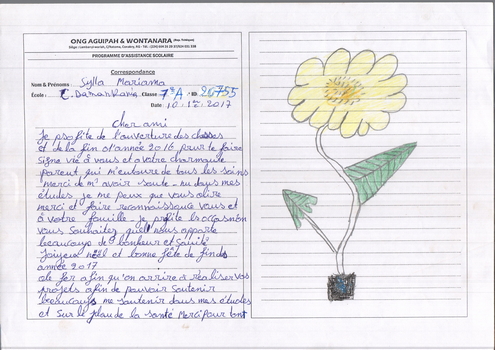 ONG AGUIPAH & WONTANARA
PROGRAMME D'ASSISTANCE SCOLAIRE
Correspondance
Nom & Prénoms : Sylla Mariama
École : C. Damankania Classe : 7è A / ID: 20755
Date : 10 2017
Cher ami
Je profite de l'ouverture des classes
et de la fin d'année 2016 pour te faire
signe vie à vous et a votre charmante
parent, qui m'entoure de tous les soins
merci de m'avoir soute-tu dans mes
études je me peux que vous dire
merci et faire reconnaissance vous et
à votre famille. je profite l'occasion
vous souhaitez quel nous apporte
beaucoup de bonheur et santé
Joyeux noël et bonne fête de fin de
année 2017
afin qu'on arrive à réaliser vos
projets afin de pouvoir soutenir
beaucoup me soutenir dans mes études
et sur le plan de la santé Merci Pour tout